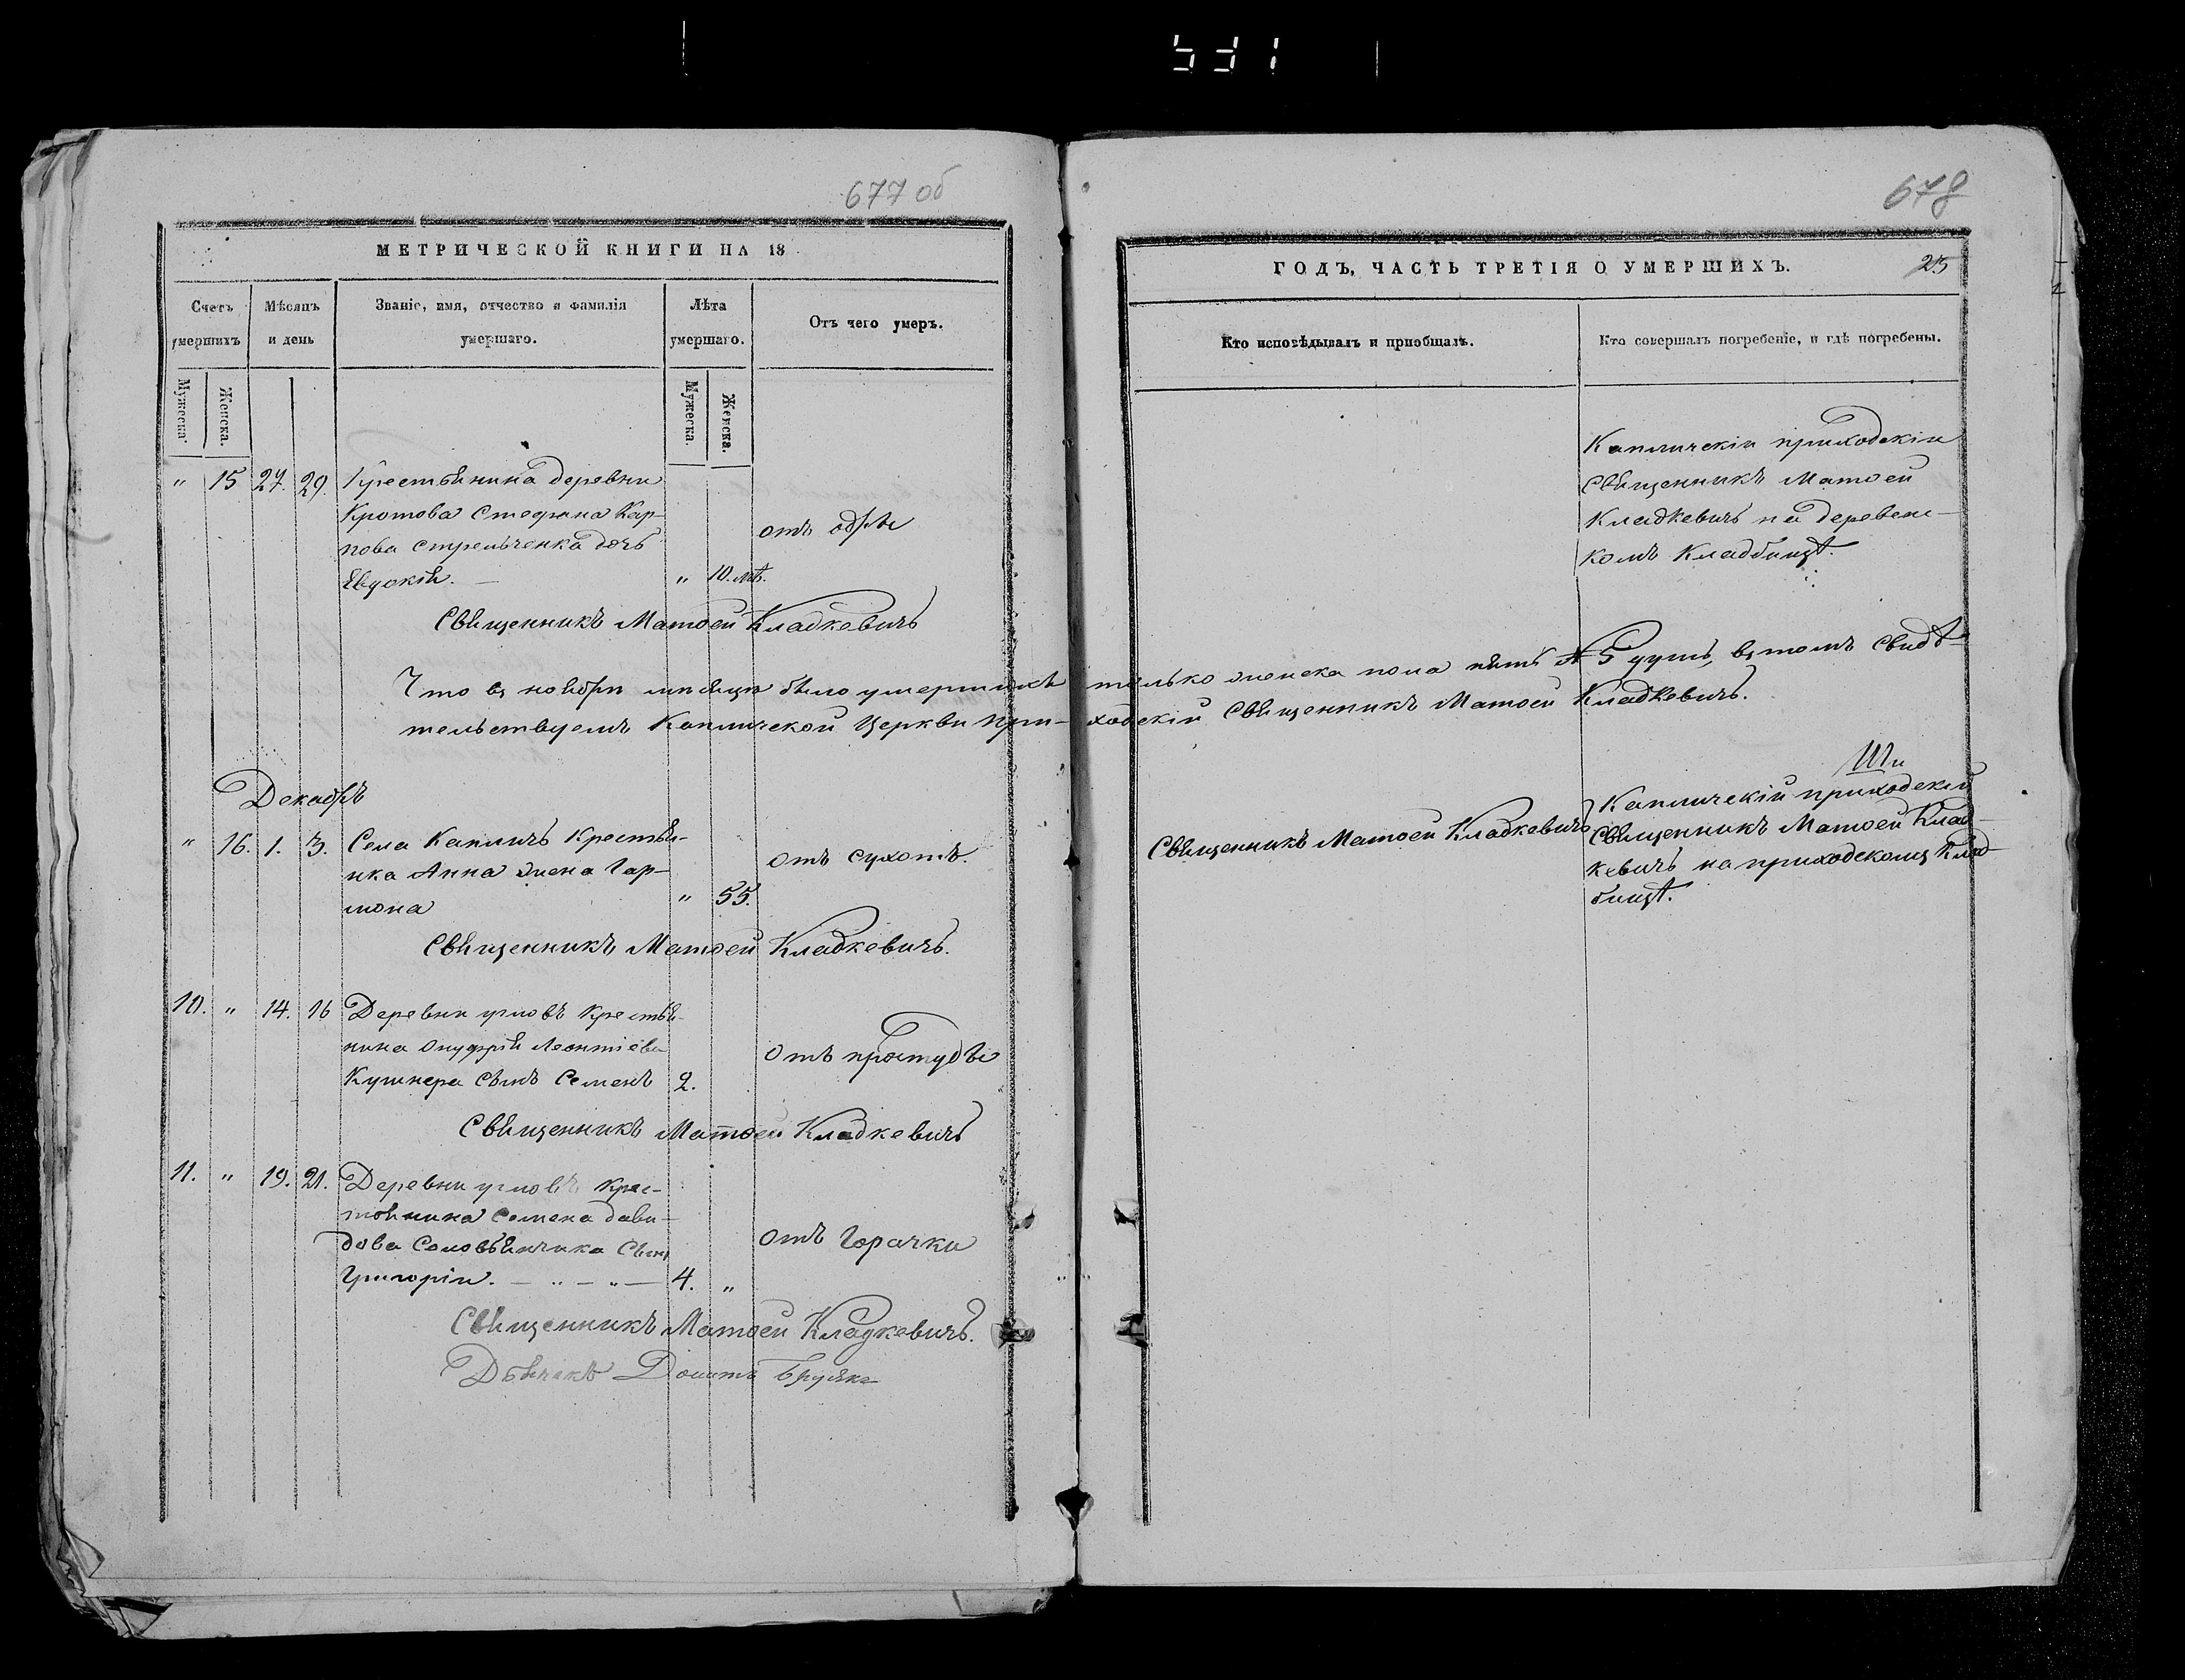 531
677 об
МЕТРИЧЕСКОЙ КНИГИ НА 18
Счетъ умершихъ
Мѣсяцъ и день
Званіе, имя, отчество и фамилія умершаго.
Лѣта умершаго.
Отъ чего умеръ.
Мужеска.
Женска.
Мужеска.
Женска.
" 15 27. 29. Крестьянина деревни
Кротова Стефана Кар-
пова Стрельченка дочь
Евдокія. — " 10. лѣ.
отъ
Священникъ Матѳей Кладкевичъ
Что въ ноябри мѣсяцѣ было умершихъ
тельствуемъ Капличской Церкви При-
Декабрь
" 16. 1. 3. Села Капличъ Крестья-
нка Анна жена Гар-
мона " 55.
отъ сухотъ.
Священникъ Матѳей Кладкевичъ.
10. " 14. 16 Деревни угловъ Крестья-
нина Онуфрія Леонтіева
Кушнера сынъ Семенъ 2.
отъ простуды
Священникъ Матѳей Кладкевичъ
11. " 19. 21. Деревни угловъ Крес-
тьянина Семена Дави-
дова сынъ
Григорій. — " — " — 4. "
отъ Горячки
Священникъ Матѳей Кладкевичъ.
Дьячекъ
678
ГОДЪ, ЧАСТЬ ТРЕТІЯ О УМЕРШИХЪ.
25
Кто исповѣдывалъ и пріобщалъ.
Кто совершалъ погребеніе, и гдѣ погребены.
Капличскій приходскій
Священникъ Матѳей
Кладкевичъ на деревенс-
комъ Кладбищѣ.
только женска пола пять 5 душъ, въ томъ свидѣ-
ходскій Священникъ Матѳей Кладкевичъ.
Священникъ Матѳей Кладкевичъ
Капличскій приходскій
Священникъ Матѳей Клад-
кевичъ на приходскомъ Клад-
бищѣ.